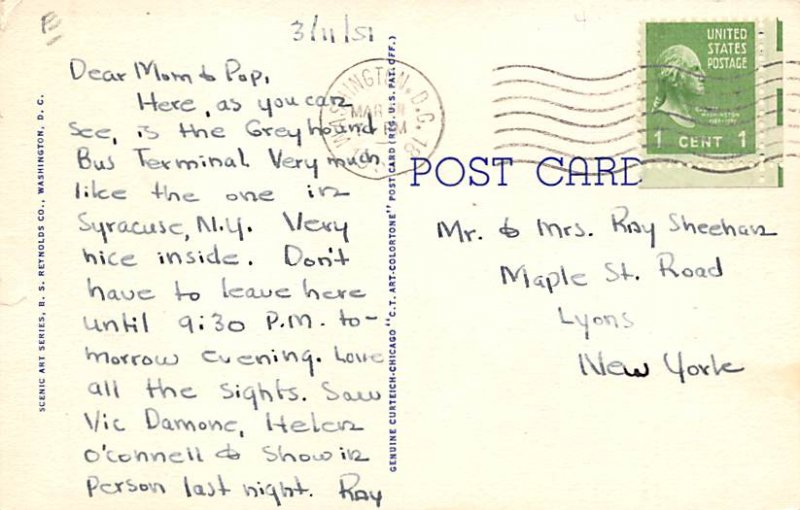 3/11/51
Dear Mom & Pop,
Here, as you can
see, is the Greyhound
Bus Terminal. Very much
like the one in
Syracuse, N.Y. Very
nice inside. Don't
have to leave here
until 9:30 P.M. to-
morrow evening. Love
all the sights. Saw
Vic Damone, Helen
O'Connell & Show in
Person last night. Ray
SCENIC ART SERIES, B. S. REYNOLDS CO., WASHINGTON, D. C.
GENUINE CURTEICH-CHICAGO "C.T. ART-COLORTONE" POSTCARD (REG. U.S. PAT. OFF.)
WASHINGTON, D.C. 18
MAR
PM
UNITED
STATES
POSTAGE
WASHINGTON
1 CENT 1
POST CARD
Mr. & Mrs. Ray Sheehan
Maple St. Road
Lyons
New York